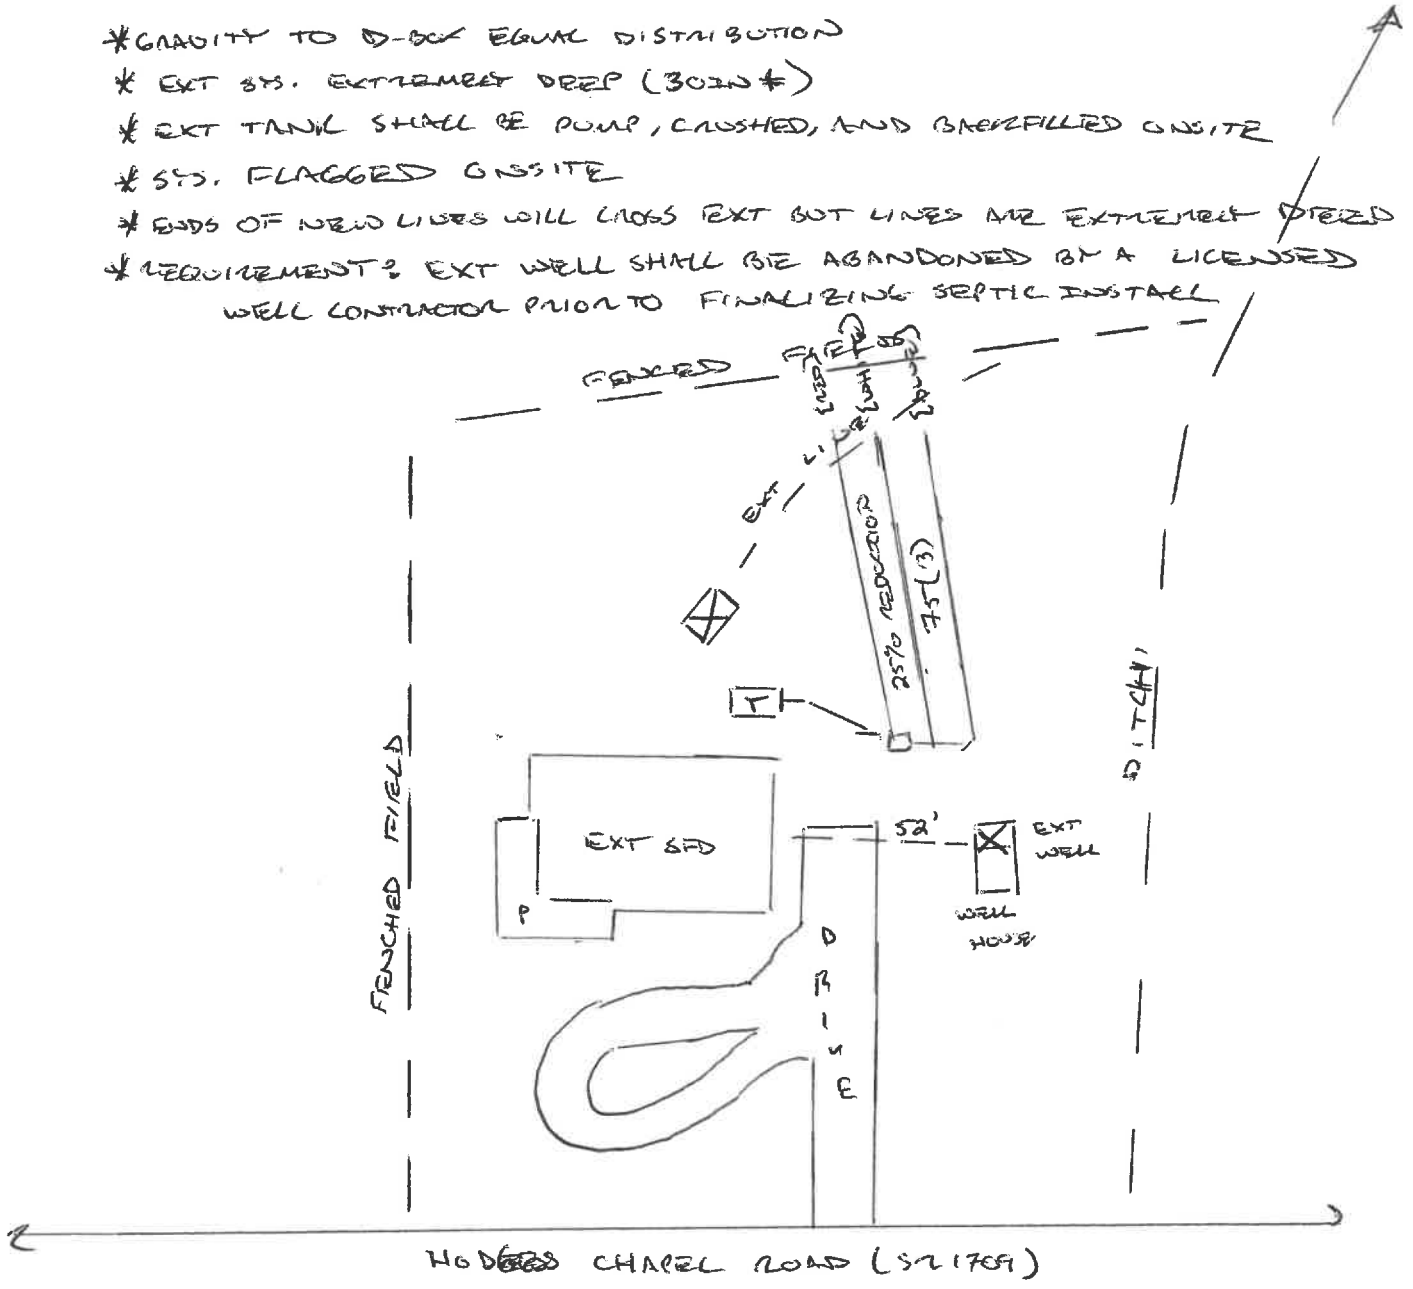 *GRAVITY TO D-BOX EQUAL DISTRIBUTION
* EXT SYS. EXTREMELY DEEP (30IN+)
* EXT TANK SHALL BE PUMP, CRUSHED, AND BACKFILLED ONSITE
* SYS. FLAGGED ONSITE
* ENDS OF NEW LINES WILL CROSS EXT BUT LINES ARE EXTREMELY DEEP
* REQUIREMENT: EXT WELL SHALL BE ABANDONED BY A LICENSED
WELL CONTRACTOR PRIOR TO FINALIZING SEPTIC INSTALL
FENCED
(RED)
(BLUE)
EXT
25% REDUCTION
75(3)
T
DITCH
FENCHED FIELD
EXT SFD
P
52'
EXT
WELL
WELL
HOUSE
DRIVE
CHAPEL ROAD (SR1709)